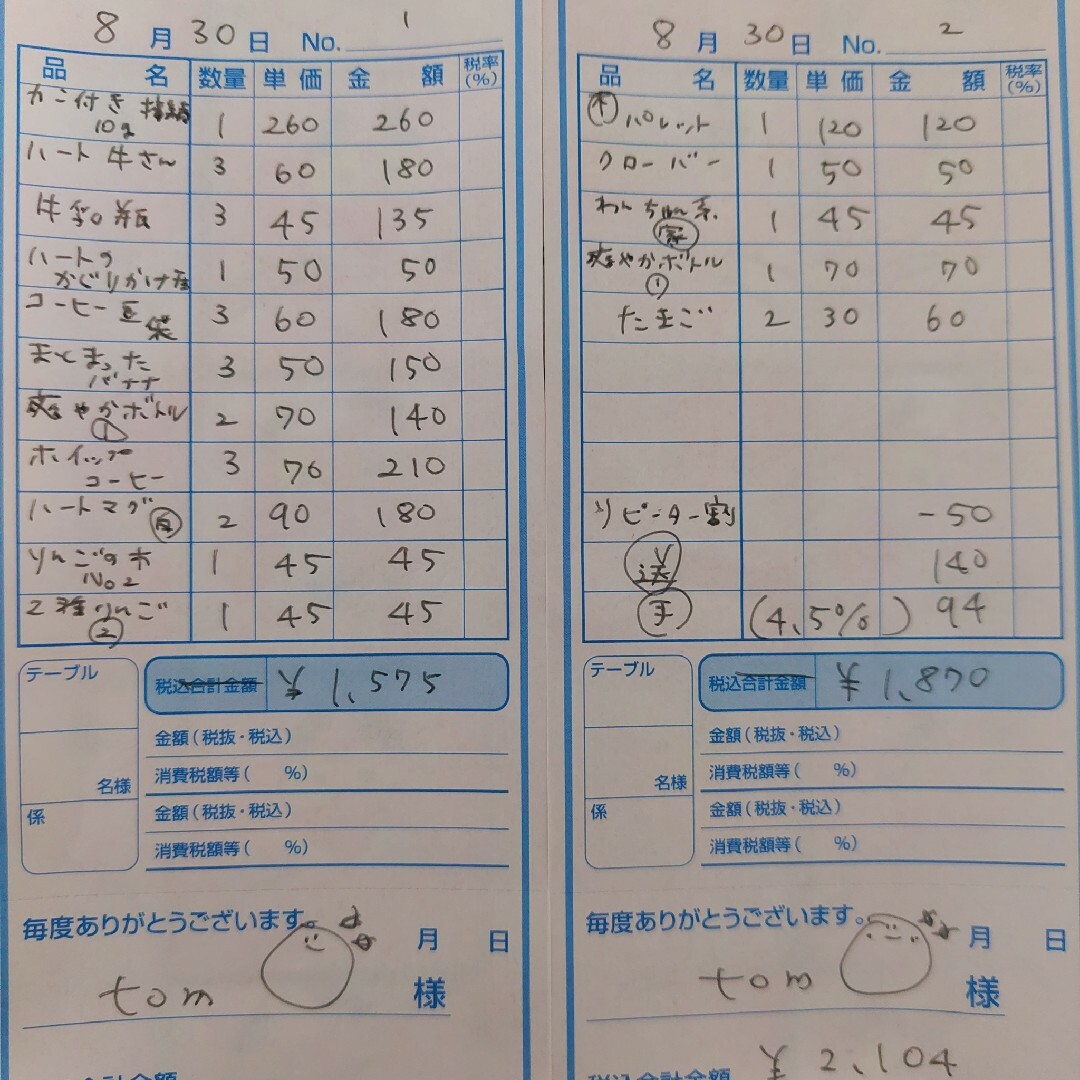 8月30日 No. 1
品名 数量 単価 金額 税率(%)
カン付き
10g 1 260 260
ハート 牛さん 3 60 180
牛乳瓶 3 45 135
ハートの
かじりかけ 1 50 50
コーヒー豆
袋 3 60 180
まとまった
バナナ 3 50 150
爽やかボトル
① 2 70 140
ホイップ
コーヒー 3 70 210
ハートマグ 2 90 180
りんごの木
No2 1 45 45
2種りんご
② 1 45 45
テーブル
税込合計金額 ¥1,575
金額(税抜・税込)
名様
消費税額等( %)
係
金額(税抜・税込)
消費税額等( %)
毎度ありがとうございます。
月 日
tom 様
合計金額
8月30日 No. 2
品名 数量 単価 金額 税率(%)
パレット 1 120 120
クローバー 1 50 50
わんちゃん系
家 1 45 45
爽やかボトル
① 1 70 70
たまご 2 30 60
リピーター割 -50
送 140
手 (4.5%) 94
テーブル
税込合計金額 ¥1,870
金額(税抜・税込)
名様
消費税額等( %)
係
金額(税抜・税込)
消費税額等( %)
毎度ありがとうございます。
月 日
tom 様
税込合計金額 ¥2,104